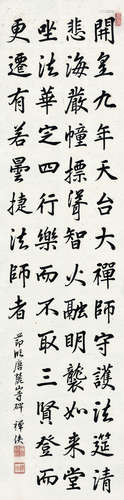 開皇九年天台大禪師守護法筵清
悲海嚴幢標聳智火融明襲如來堂
坐法華定四行樂而不取三賢登而
更遷有若曇捷法師者
節臨唐麓山寺碑